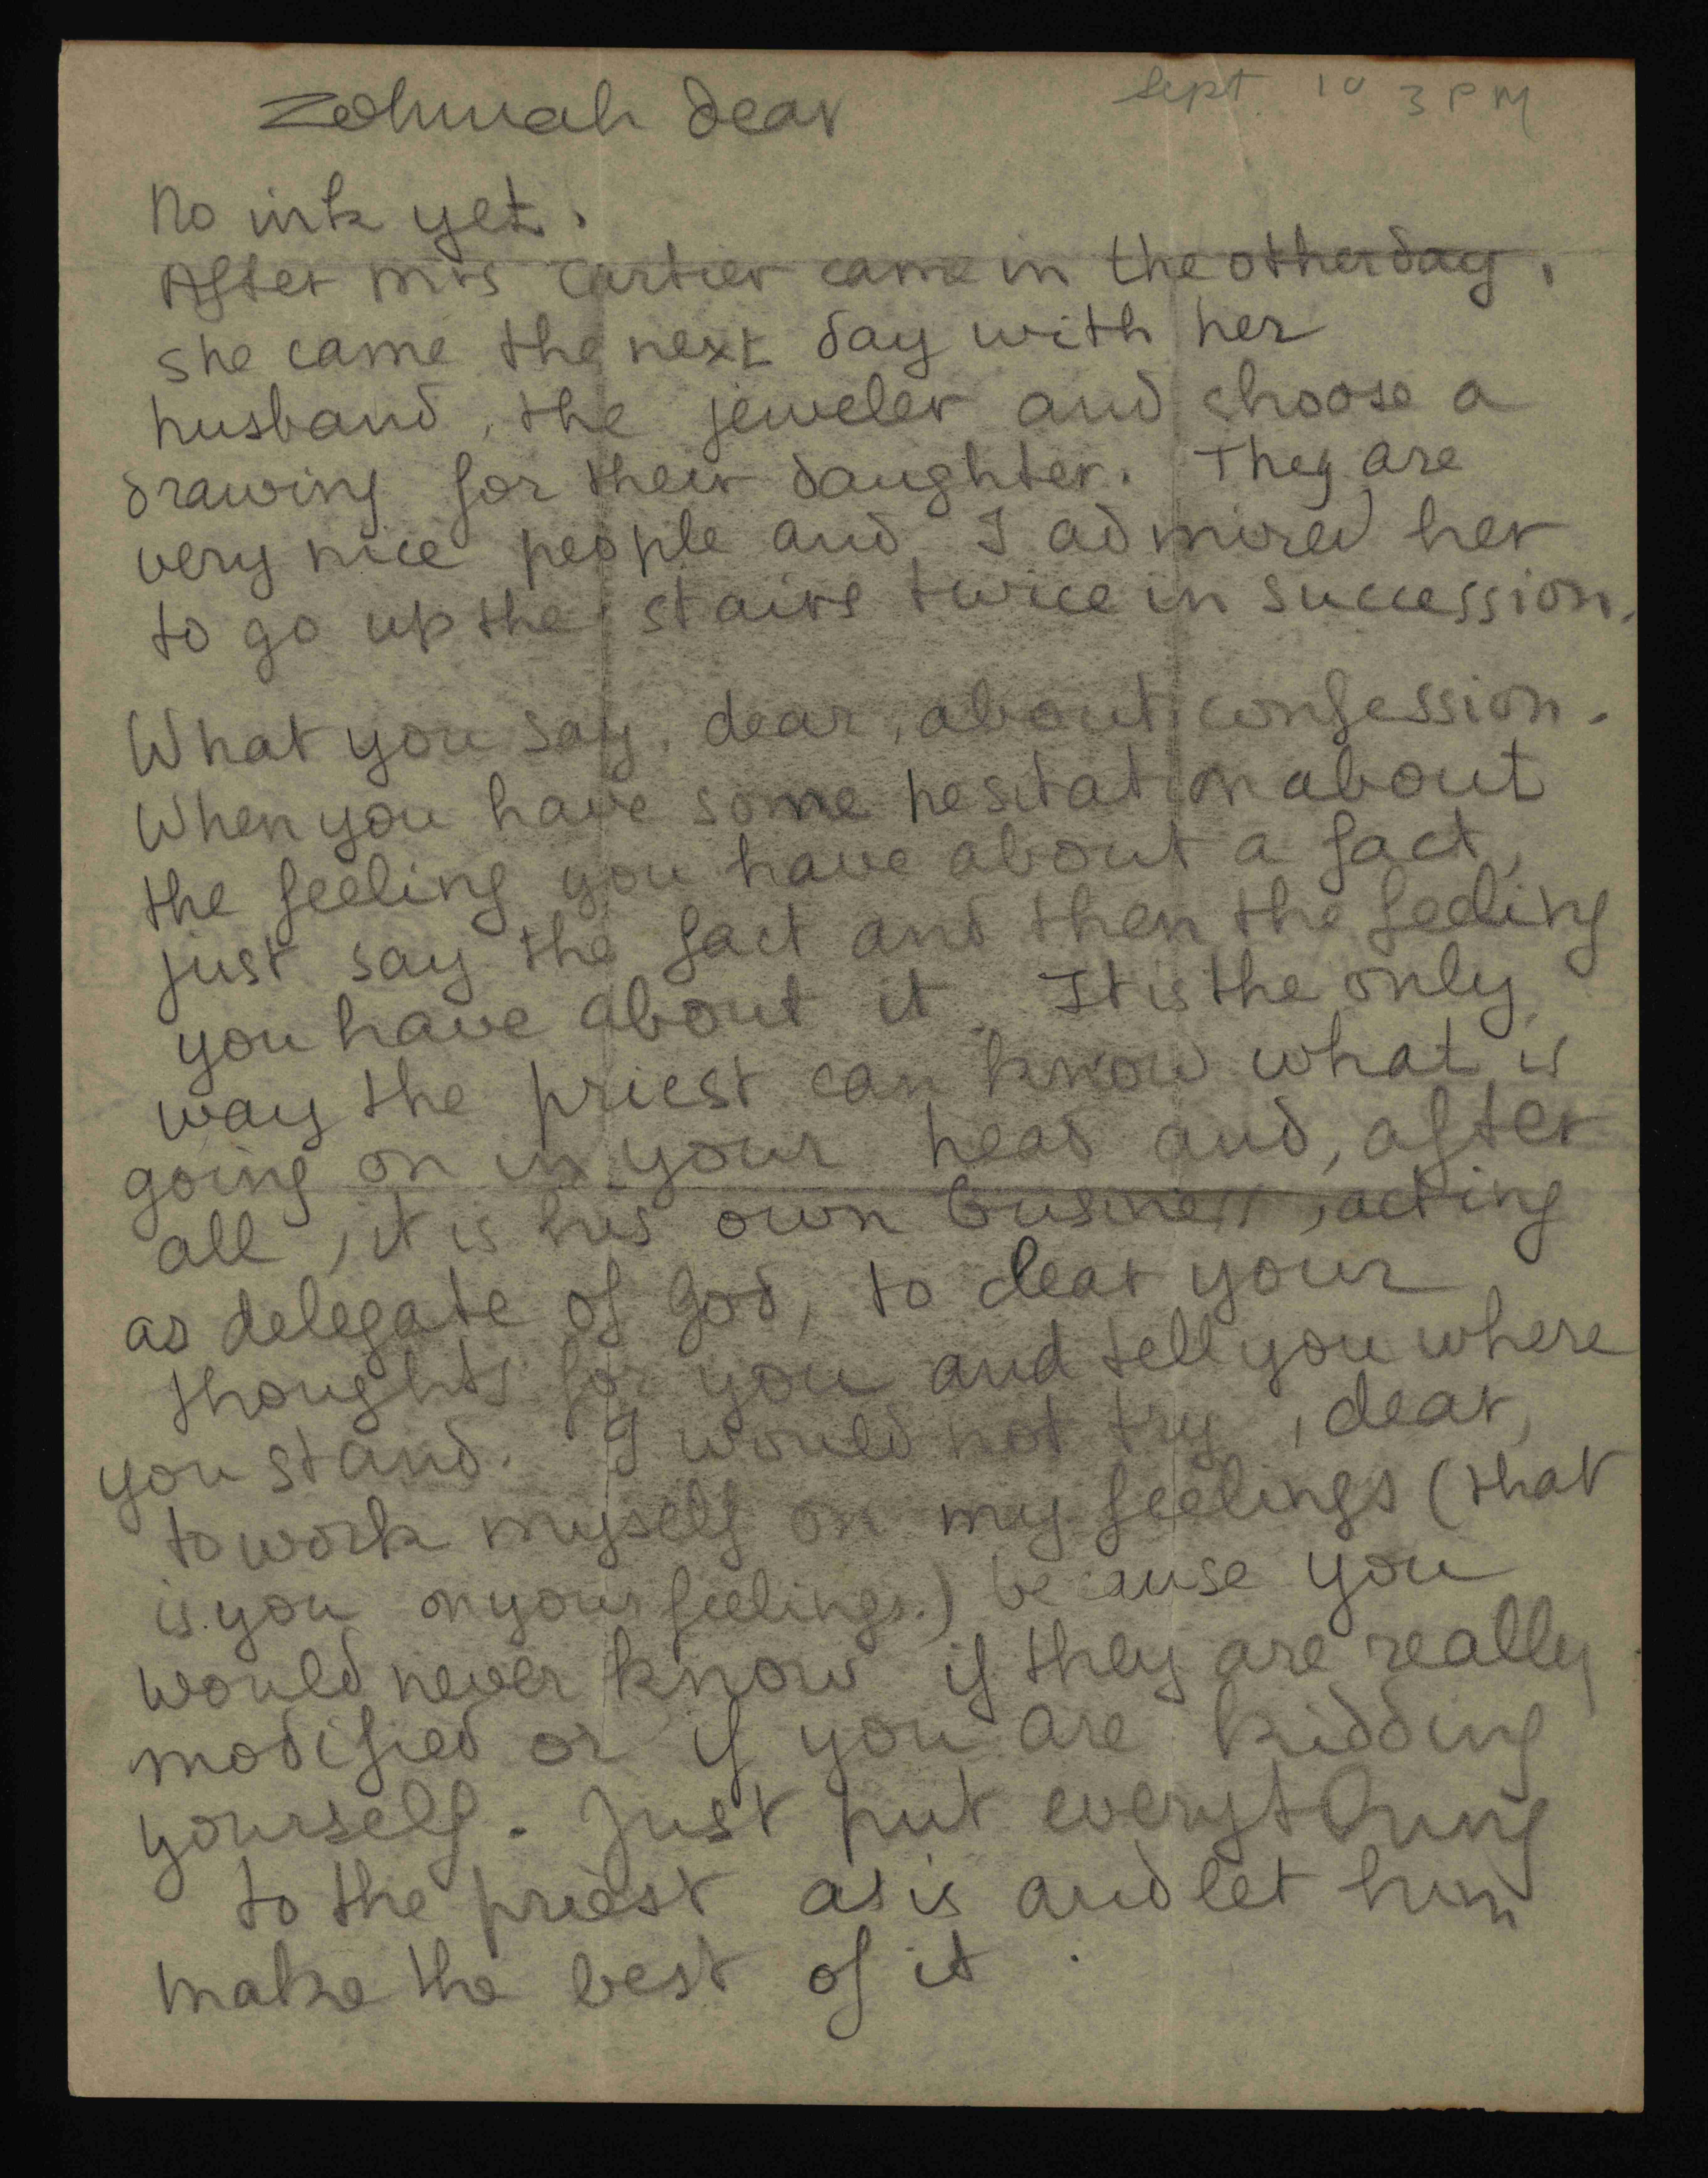 Zohmah dear
Sept. 10 3 PM
No ink yet.
After Mrs Cartier came in the other day,
she came the next day with her
husband, the jeweler and choose a
drawing for their daughter. They are
very nice people and I admired her
to go up the stairs twice in succession.
What you say, dear, about confession.
When you have some hesitation about
the feeling you have about a fact,
just say the fact and then the feeling
you have about it. It is the only
way the priest can know what is
going on in your head and, after
all, it is his own business, acting
as delegate of God, to clear your
thoughts for you and tell you where
you stand. I would not try, dear,
to work myself on my feelings (that
is you on your feelings.) because you
would never know if they are really
modified or if you are kidding
yourself. Just put everything
to the priest as is and let him
make the best of it.